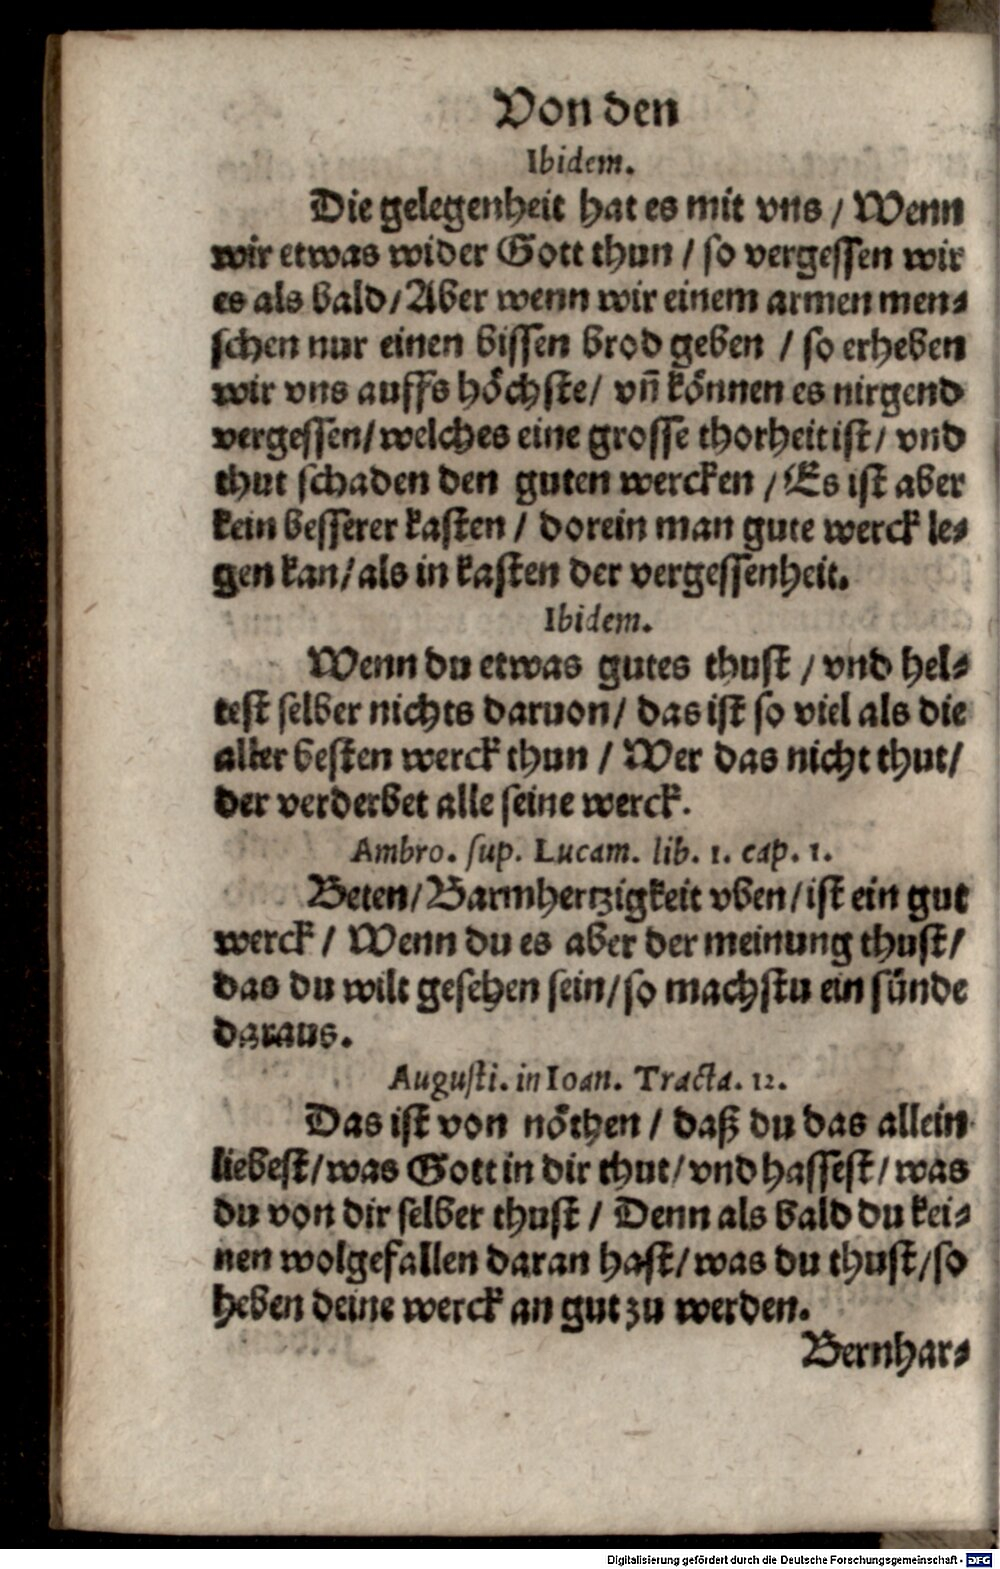 Von den
Ibidem.
Die gelegenheit hat es mit vns / Wenn
wir etwas wider Gott thun / so vergessen wir
es als bald/ Aber wenn wir einem armen men⸗
schen nur einen bissen brod geben / so erheben
wir vns auffs höchste/ vñ können es nirgend
vergessen/ welches eine grosse thorheit ist/ vnd
thut schaden den guten wercken / Es ist aber
kein besserer kasten / dorein man gute werck le⸗
gen kan/ als in kasten der vergessenheit.
Ibidem.
Wenn du etwas gutes thust / vnd hel⸗
test selber nichts daruon/ das ist so viel als die
aller besten werck thun / Wer das nicht thut/
der verderbet alle seine werck.
Ambro. sup. Lucam. lib. 1. cap. 1.
Beten/ Barmhertzigkeit vben/ ist ein gut
werck / Wenn du es aber der meinung thust/
das du wilt gesehen sein/ so machstu ein sünde
daraus.
Augusti. in Ioan. Tracta. 12.
Das ist von nöthen / daß du das allein
liebest/ was Gott in dir thut/ vnd hassest/ was
du von dir selber thust / Denn als bald du kei⸗
nen wolgefallen daran hast/ was du thust/ so
heben deine werck an gut zu werden.
Bernhar⸗
Digitalisierung gefördert durch die Deutsche Forschungsgemeinschaft - DFG